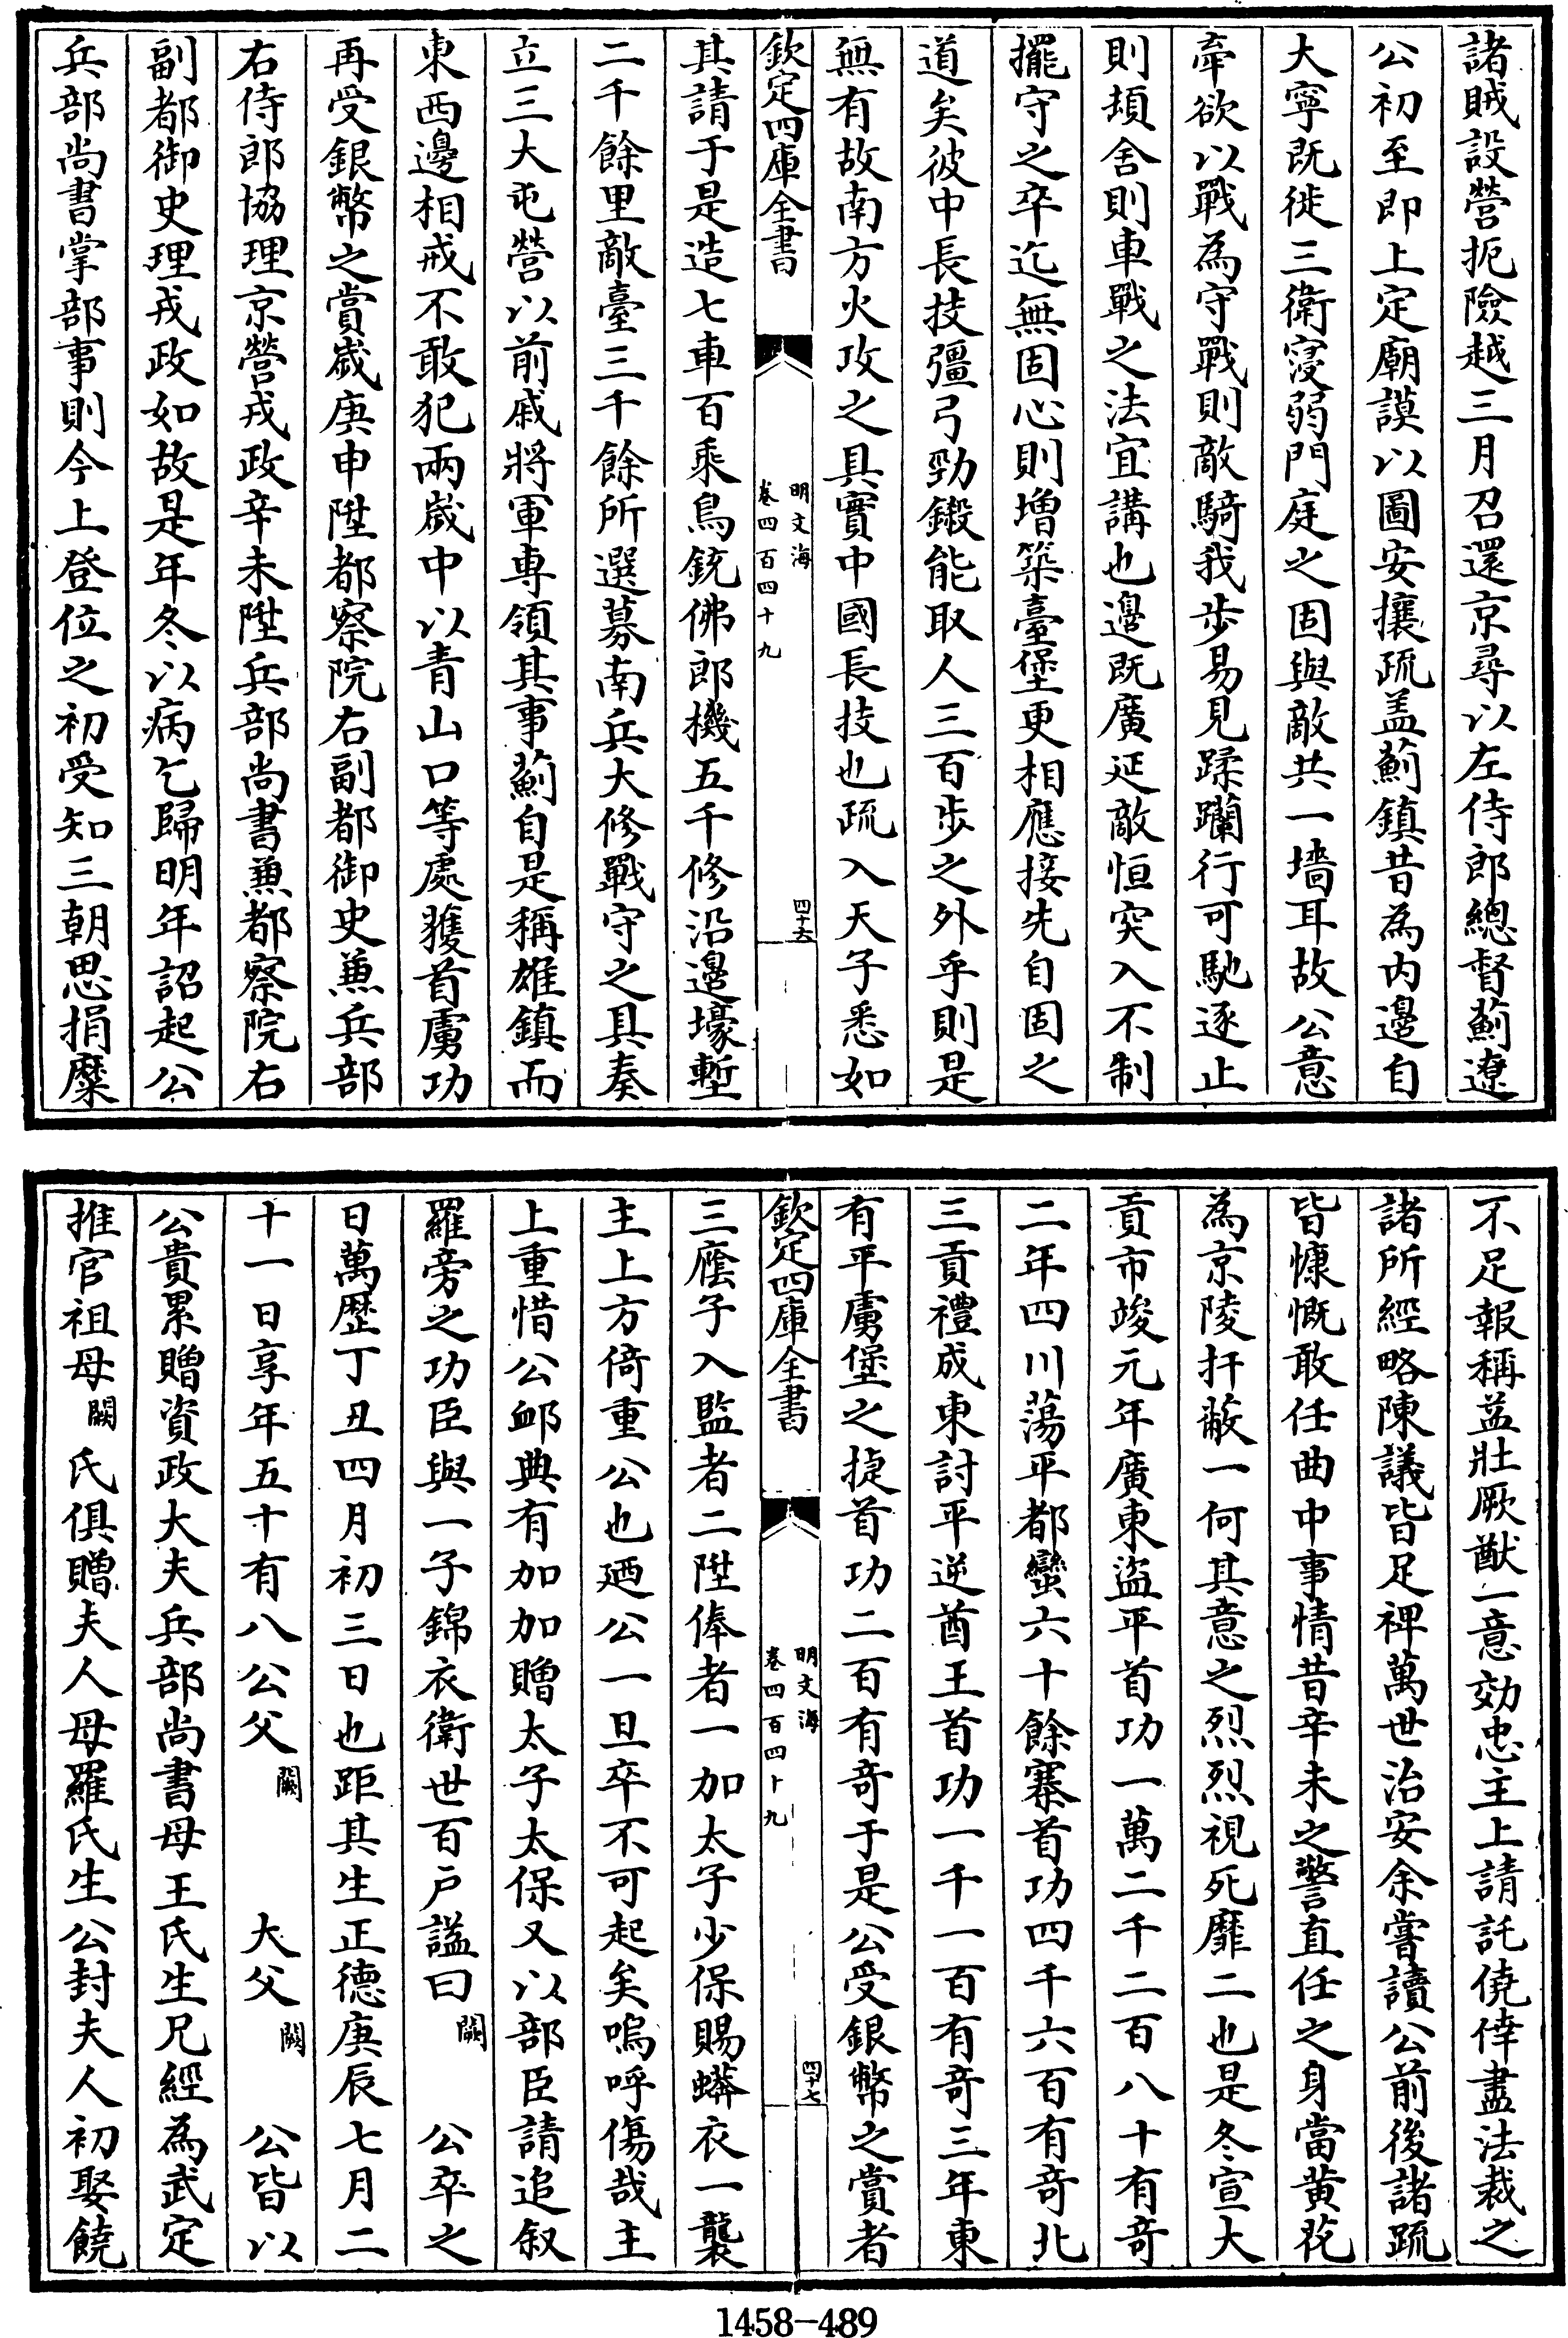 諸賊設營扼險越三月召還京尋以左侍郎總督薊遼
公初至即上定廟謨以圖安攘疏盖薊鎮昔為内邊自
大寧既徙三衛寖弱門庭之固與敵共一墻耳故公意
牽欲以戰為守戰則敵騎我步易見蹂躪行可馳逐止
則頓舍則車戰之法宜講也邊既廣延敵恒突入不制
擺守之卒迄無固心則增築臺堡更相應接先自固之
道矣彼中長技彊弓勁鍛能取人三百步之外乎則是
無有故南方火攻之具實中國長技也疏入天子悉如
欽定四庫全書
明文海
卷四百四十九
四十六
其請于是造七車百乘鳥銃佛郎機五千修沿邊壕塹
二千餘里敵臺三千餘所選募南兵大修戰守之具奏
立三大屯營以前戚將軍專領其事薊自是稱雄鎮而
東西邊相戒不敢犯兩歲中以青山口等處獲首虜功
再受銀幣之賞歲庚申陞都察院右副都御史兼兵部
右侍郎協理京營戎政辛未陞兵部尚書兼都察院右
副都御史理戎政如故是年冬以病乞歸明年詔起公
兵部尚書掌部事則今上登位之初受知三朝思捐糜
不足報稱益壯厥猷一意効忠主上請託僥倖盡法裁之
諸所經略陳議皆足裨萬世治安余嘗讀公前後諸疏
皆慷慨敢任曲中事情昔辛未之警直任之身當黄花
為京陵扞蔽一何其意之烈烈視死靡二也是冬宣大
貢市竣元年廣東盜平首功一萬二千二百八十有奇
二年四川蕩平都蠻六十餘寨首功四千六百有奇北
三貢禮成東討平逆酋王首功一千一百有奇三年東
有平虜堡之捷首功二百有奇于是公受銀幣之賞者
欽定四庫全書
明文海
卷四百四十九
四十七
三廕子入監者二陞俸者一加太子少保賜蟒衣一襲
主上方倚重公也廼公一旦卒不可起矣嗚呼傷哉主
上重惜公䘏典有加加贈太子太保又以部臣請追叙
羅旁之功臣與一子錦衣衛世百戶諡曰闕 公卒之
日萬歷丁丑四月初三日也距其生正德庚辰七月二
十一日享年五十有八公父闕 大父闕 公皆以
公貴累贈資政大夫兵部尚書母王氏生兄經為武定
推官祖母闕氏俱贈夫人母羅氏生公封夫人初娶饒
1458-489